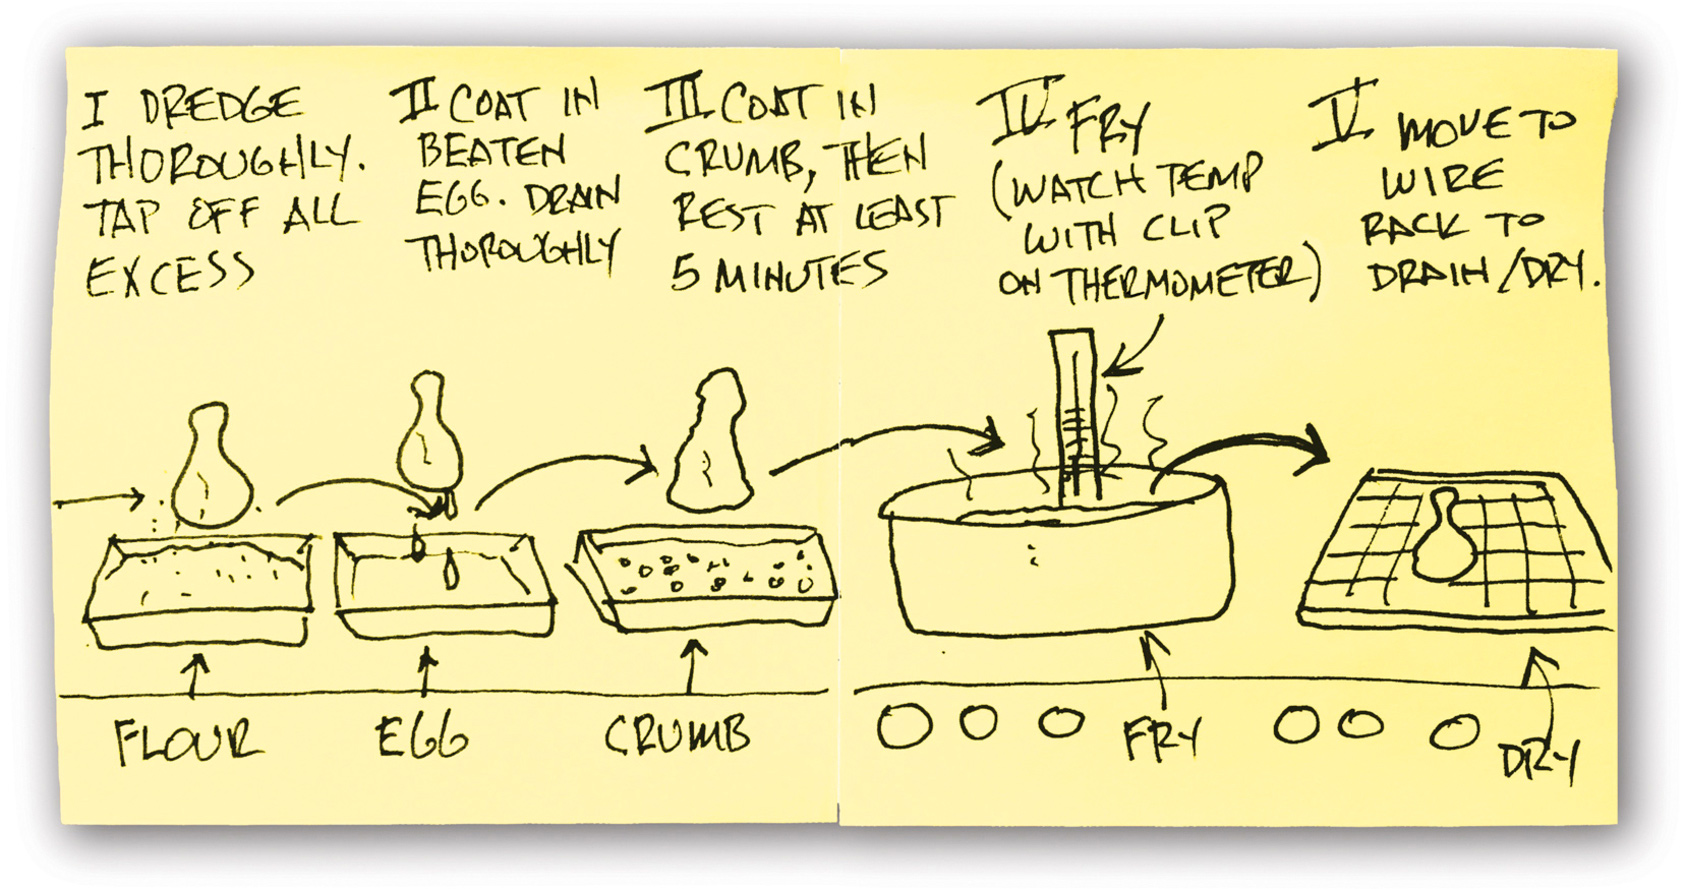 I DREDGE
THOROUGHLY.
TAP OFF ALL
EXCESS
II COAT IN
BEATEN
EGG. DRAIN
THOROUGHLY
III. COAT IN
CRUMB, THEN
REST AT LEAST
5 MINUTES
IV. FRY
(WATCH TEMP
WITH CLIP
ON THERMOMETER)
V. MOVE TO
WIRE
RACK TO
DRAIN/DRY.
FLOUR
EGG
CRUMB
FRY
DRY